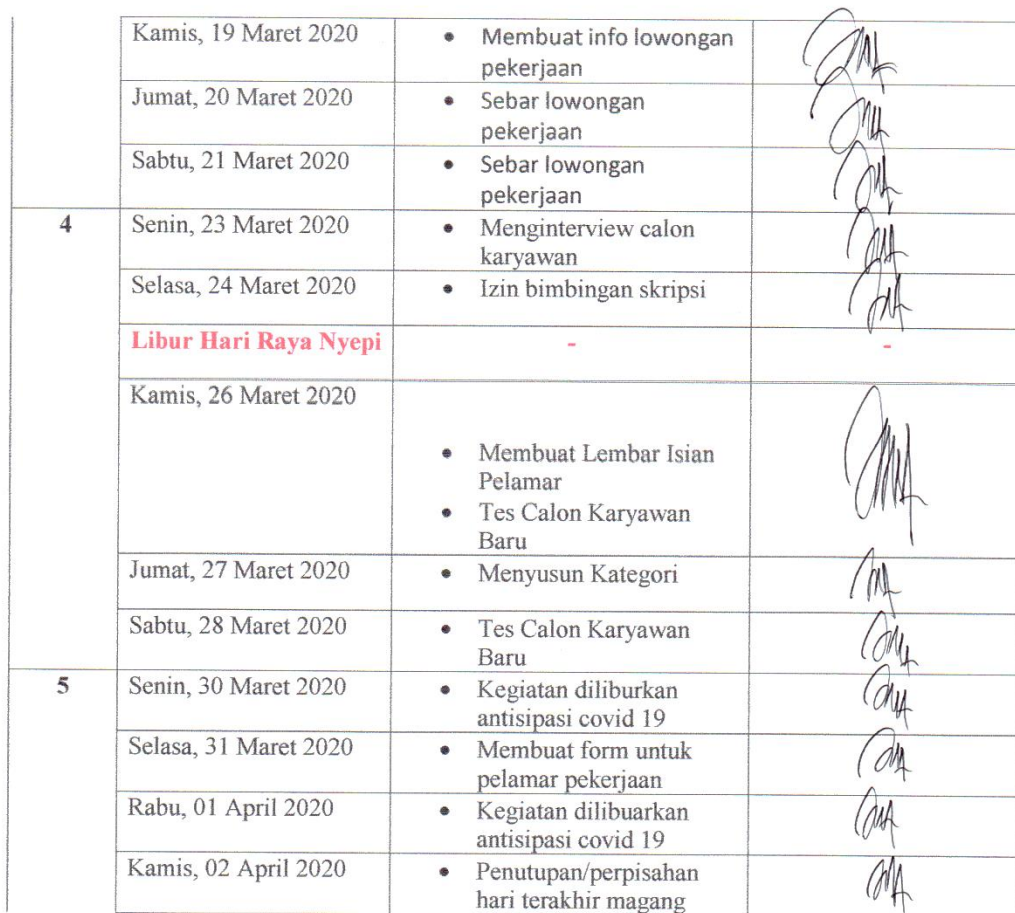 Kamis, 19 Maret 2020
• Membuat info lowongan
pekerjaan
Jumat, 20 Maret 2020
• Sebar lowongan
pekerjaan
Sabtu, 21 Maret 2020
• Sebar lowongan
pekerjaan
4
Senin, 23 Maret 2020
• Menginterview calon
karyawan
Selasa, 24 Maret 2020
• Izin bimbingan skripsi
Libur Hari Raya Nyepi
-
-
Kamis, 26 Maret 2020
• Membuat Lembar Isian
Pelamar
• Tes Calon Karyawan
Baru
Jumat, 27 Maret 2020
• Menyusun Kategori
Sabtu, 28 Maret 2020
• Tes Calon Karyawan
Baru
5
Senin, 30 Maret 2020
• Kegiatan diliburkan
antisipasi covid 19
Selasa, 31 Maret 2020
• Membuat form untuk
pelamar pekerjaan
Rabu, 01 April 2020
• Kegiatan dilibuarkan
antisipasi covid 19
Kamis, 02 April 2020
• Penutupan/perpisahan
hari terakhir magang